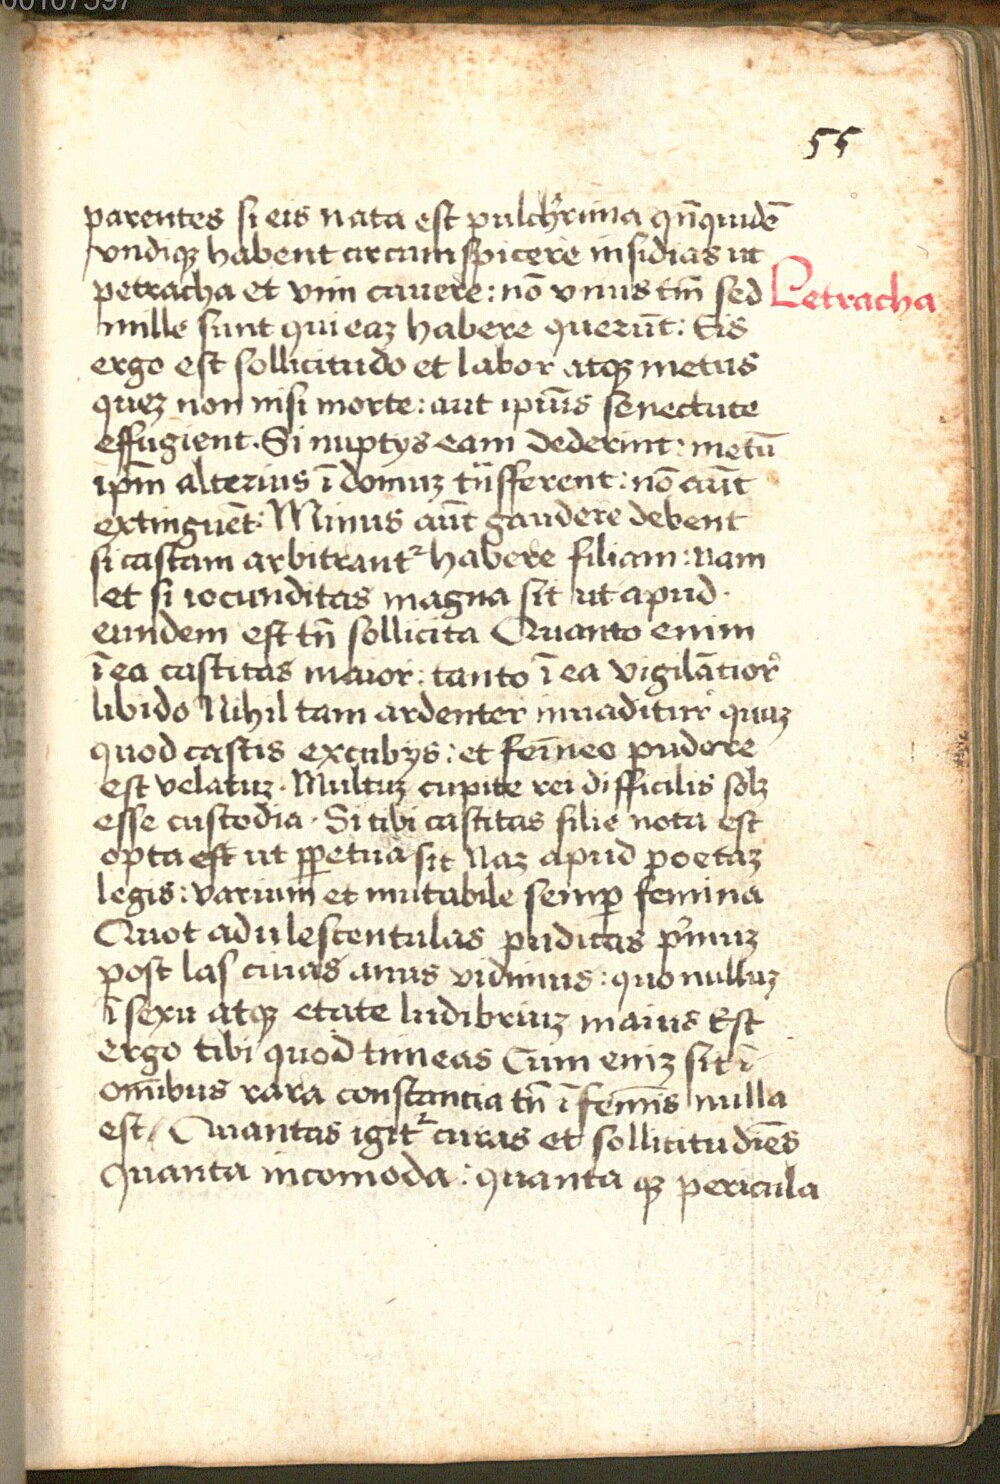 00107597
55
parentes si eis nata est pulch̓rima qn̄quidē
vndiqꝫ habent circumspicere insidias ut
petracha et vim cavere: nō vnus tm̄ sed
Petracha
mille sunt qui eaꝫ habere querūt: Eis
ergo est sollicitudo et labor atqꝫ metus
queꝫ non nisi morte: aut ipiūs senectute
effugient. Si nuptys eam dederint: metū
ip̄m alterius ī domuꝫ trāsferent: nō aūt
extinguēt: Minus aūt gaudere debent
si castam arbitrant᷑ habere filiam: Nam
et si iocunditas magna sit ut apud.
eundem est tn̄ sollicita Quanto enim
ī ea castitas maior: tanto ī ea vigilātior
libido Nihil tam ardenter inuaditur quaꝫ
quod castis excubys: et femīneo pudore
est velatuꝫ. Multuꝫ cupite rei difficilis solꝫ
esse custodia. Si tibi castitas filie nota est
opta est ut ꝑpetua sit Naꝫ apud poetaꝫ
legis: varium et mutabile semꝑ femina
Quot adulescentulas pudicas p̓muꝫ
post lasciuas anus vidimus: quo nulluꝫ
ī sexu atqꝫ etate ludibriuꝫ maius Est
ergo tibi quod timeas Cum eniꝫ sit ī
omībus rara constancia tn̄ ī femīs nulla
est / Quantas igit᷑ curas et sollicitudīes
Quanta incomoda: quanta qꝫ pericula